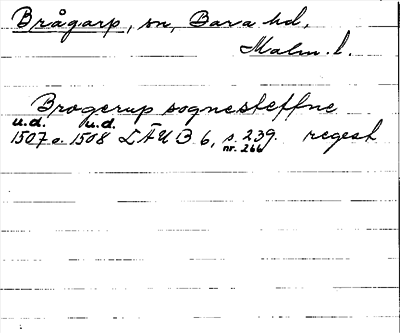 Brågarp, sn, Bara hd,
Malm. l.
Brogerup sognesteffne
u.d. u.d.
1507 o. 1508 LÄUB 6, s. 239. regest
nr. 266